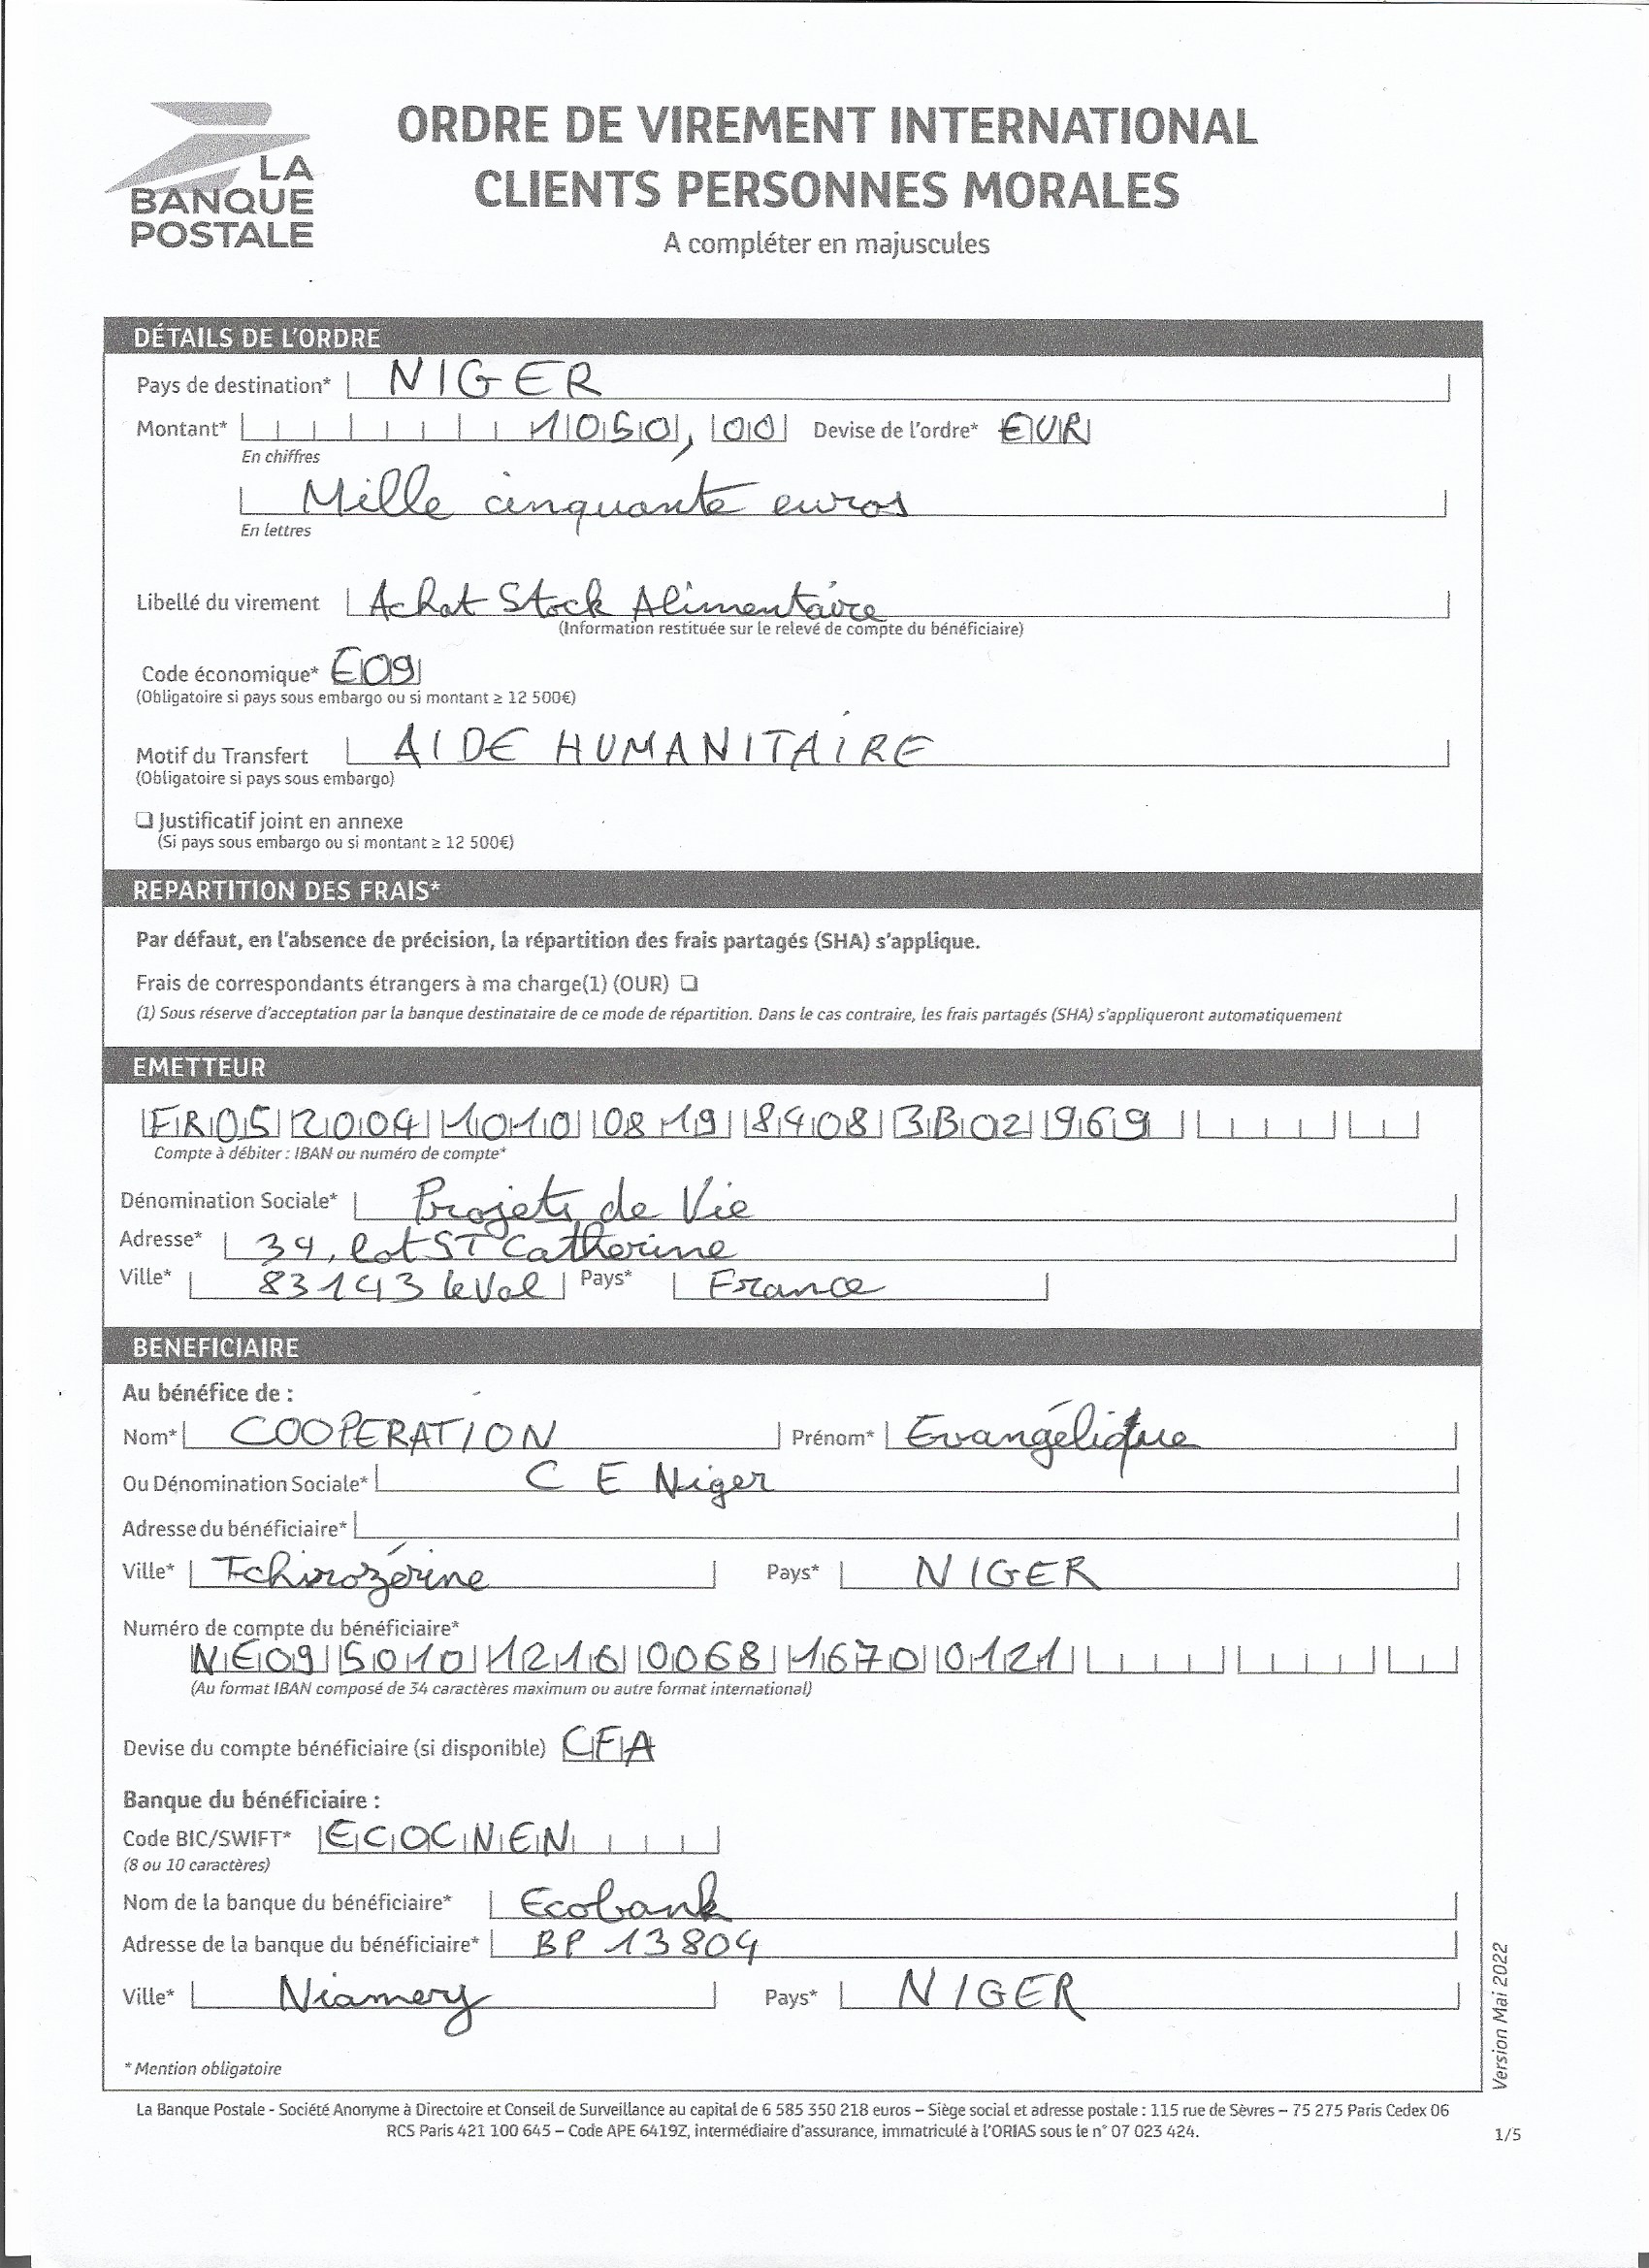 LA
BANQUE
POSTALE
ORDRE DE VIREMENT INTERNATIONAL
CLIENTS PERSONNES MORALES
A compléter en majuscules
DÉTAILS DE L'ORDRE
Pays de destination* NIGER
Montant* 1050,00 Devise de l'ordre* EUR
En chiffres
Mille cinquante euros
En lettres
Libellé du virement Achat Stock Alimentaire
(Information restituée sur le relevé de compte du bénéficiaire)
Code économique* E09
(Obligatoire si pays sous embargo ou si montant ≥ 12 500€)
Motif du Transfert AIDE HUMANITAIRE
(Obligatoire si pays sous embargo)
❑ Justificatif joint en annexe
(Si pays sous embargo ou si montant ≥ 12 500€)
REPARTITION DES FRAIS*
Par défaut, en l'absence de précision, la répartition des frais partagés (SHA) s'applique.
Frais de correspondants étrangers à ma charge(1) (OUR) ❑
(1) Sous réserve d'acceptation par la banque destinataire de ce mode de répartition. Dans le cas contraire, les frais partagés (SHA) s'appliqueront automatiquement
EMETTEUR
FR05 2004 1010 0819 8408 3B02 969
Compte à débiter : IBAN ou numéro de compte*
Dénomination Sociale* Projets de Vie
Adresse* 34, lot ST Catherine
Ville* 83143 le Val Pays* France
BENEFICIAIRE
Au bénéfice de :
Nom* COOPERATION Prénom* Evangélique
Ou Dénomination Sociale* C E Niger
Adresse du bénéficiaire*
Ville* Tchirozérine Pays* NIGER
Numéro de compte du bénéficiaire*
NE09 5010 1216 0068 1670 0121
(Au format IBAN composé de 34 caractères maximum ou autre format international)
Devise du compte bénéficiaire (si disponible) CFA
Banque du bénéficiaire :
Code BIC/SWIFT* ECOCNEN
(8 ou 10 caractères)
Nom de la banque du bénéficiaire* Ecobank
Adresse de la banque du bénéficiaire* BP 13804
Ville* Niamey Pays* NIGER
* Mention obligatoire
Version Mai 2022
La Banque Postale - Société Anonyme à Directoire et Conseil de Surveillance au capital de 6 585 350 218 euros – Siège social et adresse postale : 115 rue de Sèvres – 75 275 Paris Cedex 06
RCS Paris 421 100 645 – Code APE 6419Z, intermédiaire d'assurance, immatriculé à l'ORIAS sous le n° 07 023 424.
1/5